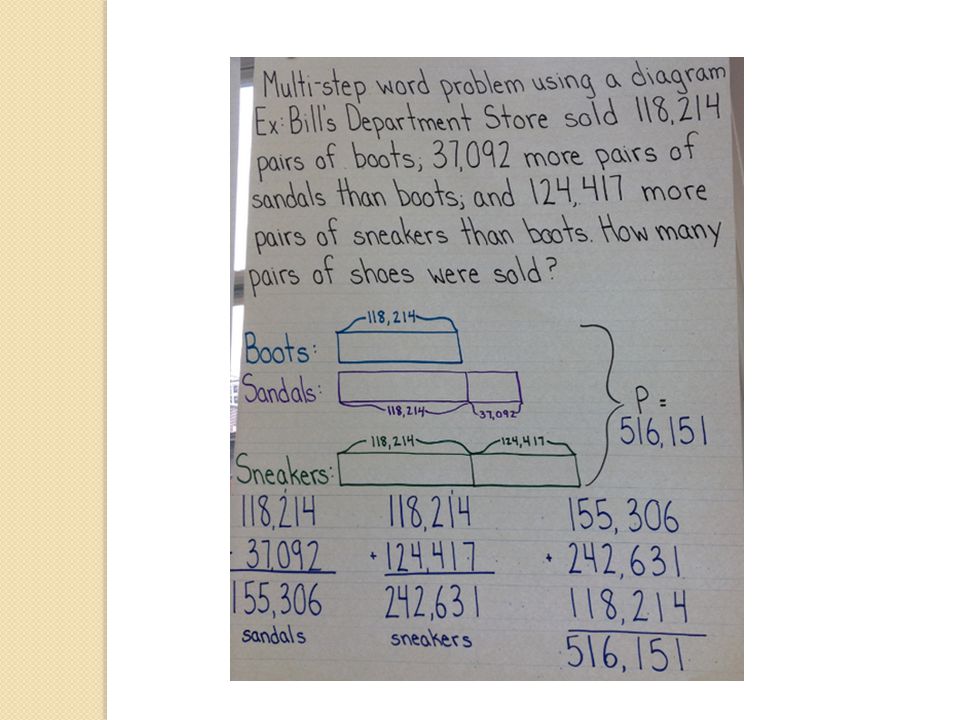 Multi-step word problem using a diagram
Ex: Bill's Department Store sold 118,214
pairs of boots; 37,092 more pairs of
sandals than boots; and 124,417 more
pairs of sneakers than boots. How many
pairs of shoes were sold?
118,214
Boots:
Sandals:
118,214 37,092
P =
516,151
118,214 124,417
Sneakers:
118,214
+ 37,092
155,306
sandals
118,214
+ 124,417
242,631
sneakers
155,306
+ 242,631
118,214
516,151